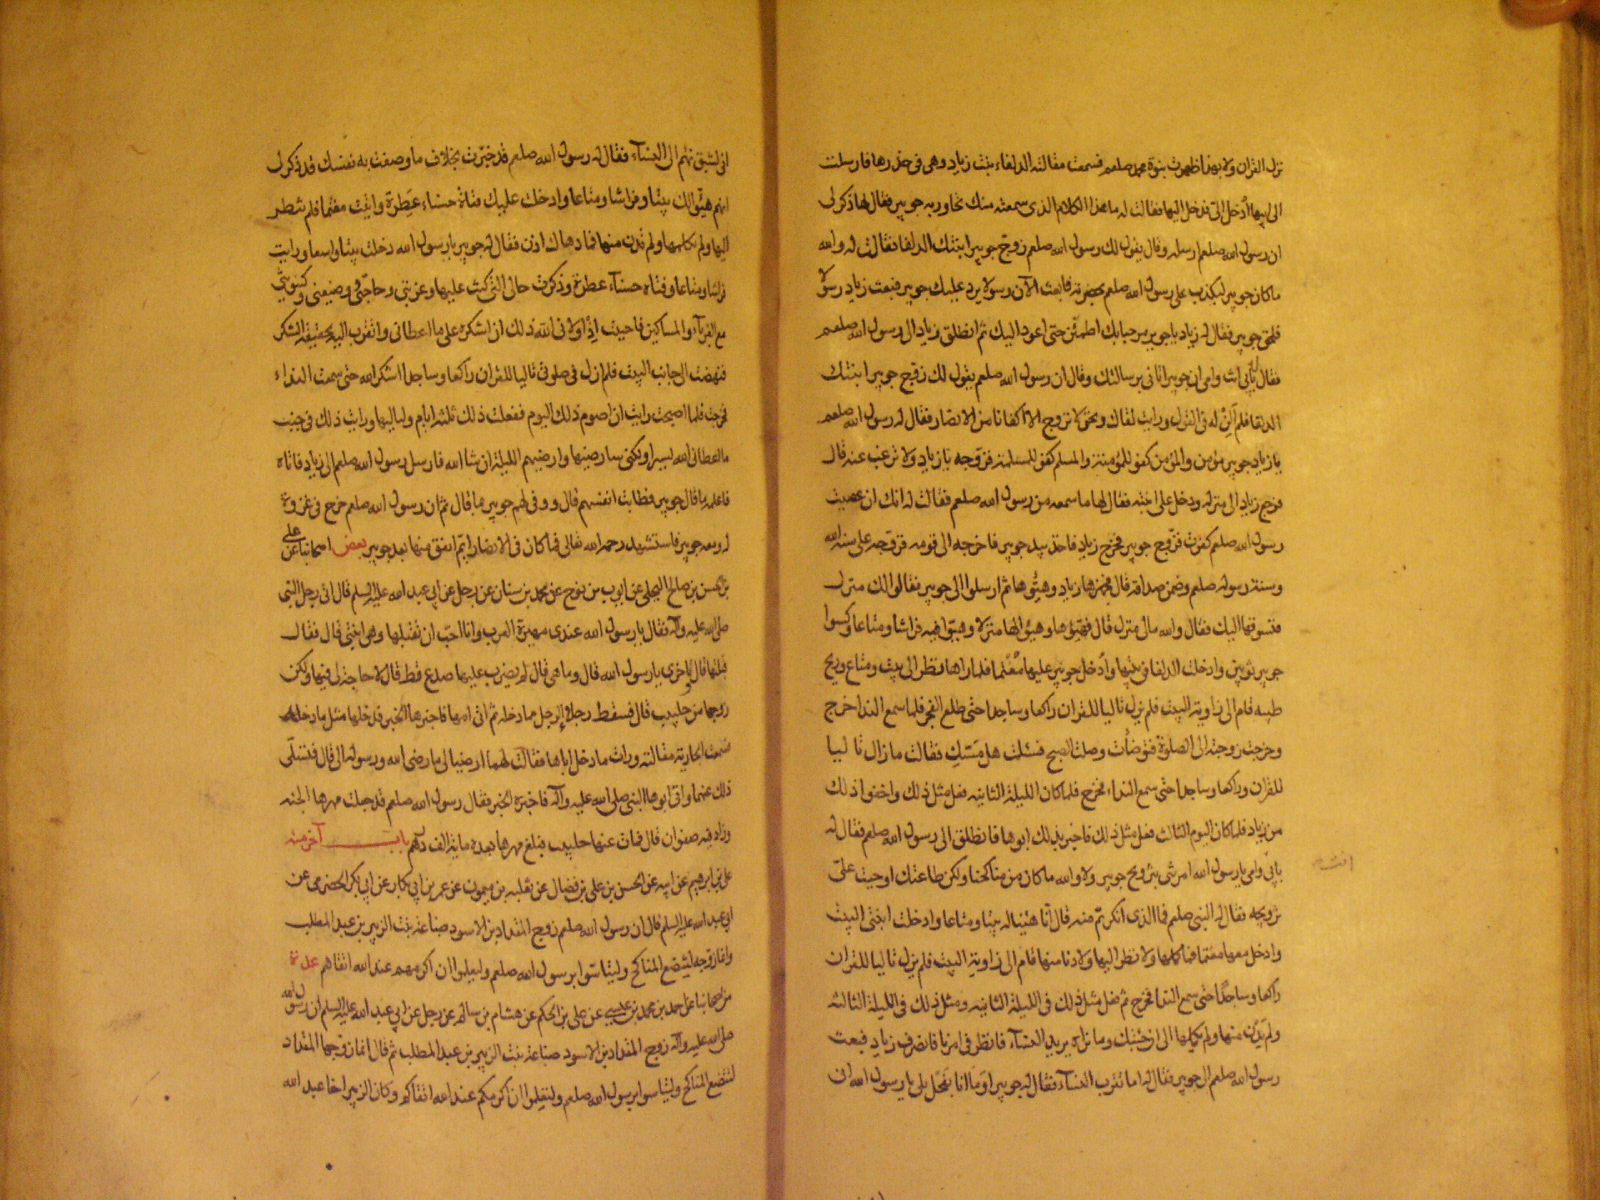 نزل القران ولا بهذا ظهرت نبوة محمد صلعم فسمعت مقالته الدلفاء بنت زياد وهى فى خدرها فارسلت
الى ابيها ادخل الىّ فدخل اليها فقالت له ما هذا الكلام الذى سمعته منك تحاور به جويبر فقال لها ذكر لى
ان رسول الله صلعم ارسله وقال يقول لك رسول الله صلعم زوّج جويبرا ابنتك الدلفا فقالت له والله
ما كان جويبر ليكذب على رسول الله صلعم بحضرته فابعث الآن رسولا يرد عليك جويبر فبعث زياد رسولا
فلحق جويبر فقال له زياد يا جويبر مرحبا بك اطمئن حتى اعود اليك ثم انطلق زياد الى رسول الله صلعم
فقال له بابى انت وامى ان جويبرا اتانى برسالتك وقال ان رسول الله صلعم يقول لك زوّج جويبرا ابنتك
الدلفا فلم الن له فى القول ورايت لقاك ونحن لا نزوج الا اكفائنا من الانصار فقال له رسول الله صلعم
يا زياد جويبر مؤمن والمؤمن كفو للمؤمنة والمسلم كفو للمسلمة فزوّجه يا زياد ولا ترغب عنه قال
فرجع زياد الى منزله ودخل على ابنته فقال لها ما سمعه من رسول الله صلعم فقالت له انك ان عصيت
رسول الله صلعم كفرت فزوّج جويبر فخرج زياد فاخذ بيد جويبر فاخرجه الى قومه فزوّجه على سنة الله
وسنة رسوله صلعم وضمن صداقه قال فجهزها زياد وهيّؤها ثم ارسلوا الى جويبر فقالوا الك منزل
فنسوقها اليك فقال والله مالى منزل قال فهيّؤها وهيّؤا لها منزلا وهيّؤا فيه فراشا ومتاعا وكسوا
جويبر ثوبين وادخلت الدلفا فى بيتها وادخل جويبر عليها مغتما فلما راها نظر الى بيت ومتاع وريح
طيبه قام الى زاوية البيت فلم يزل تاليا للقران راكعا وساجدا حتى طلع الفجر فلما سمع الندا خرج
وخرجت زوجته الى الصلوة فتوضأت وصلت الصبح فسئلت هل مسّكِ فقالت ما زال تاليا
للقران وراكعا وساجدا حتى سمع النداء فخرج فلما كان الليلة الثانيه فعل مثل ذلك واخفوا ذلك
من زياد فلما كان اليوم الثالث فعل مثل ذلك فاخبر بذلك ابوها فانطلق الى رسول الله صلعم فقال له
بابى وامى يا رسول الله امرتنى بتزويج جويبر ولا والله ما كان من مناكحنا ولكن طاعتك اوجبت علىّ
تزويجه فقال له النبى صلعم فما الذى انكرتم منه قال انا هيّئنا له بيتا ومتاعا وادخلت ابنتى البيت
وادخل معها مغتما فما كلمها ولا نظر اليها ولا دنا منها قام الى زاوية البيت فلم يزل تاليا للقران
راكعا وساجدا حتى سمع الندا فخرج ثم فعل مثل ذلك فى الليلة الثانيه ومثل ذلك فى الليلة الثالثه
ولم يدن منها ولم يكلمها الى ان جئتك وما نراه يريد النساء فانظر فى امرنا فانصرف زياد فبعث
رسول الله صلعم الى جويبر فقال له اما تقرب النساء فقال له جويبر او ما انا بفحل بلى يا رسول الله انى
انى لشبق نهم الى النساء فقال له رسول الله صلعم قد خبرت بخلاف ما وصفت به نفسك قد ذكر لى
انهم هيّؤا لك بيتا وفراشا ومتاعا وادخلت عليك فتاة حسناء عطرة واتيت مغتما فلم تنظر
اليها ولم تكلمها ولم تدن منها فما دهاك اذن فقال له جويبر يا رسول الله دخلت بيتا واسعا ورايت
فراشا ومتاعا وفتاة حسناء عطرة وذكرت حالى التى كنت عليها وغربتى وحاجتى وضيعتى وكينونتى
مع الغرباء والمساكين فاحببت اذ اولانى الله ذلك ان اشكره على ما اعطانى واتقرب اليه بحقيقة الشكر
فنهضت الى جانب البيت فلم ازل فى صلوتى تاليا للقران راكعا وساجدا اشكر الله حتى سمعت النداء
فخرجت فلما اصبحت رايت ان اصوم ذلك اليوم ففعلت ذلك ثلثة ايام ولياليها ورايت ذلك فى جنب
ما اعطانى الله يسيرا ولكنى سارضيها وارضيهم الليلة ان شاء الله فارسل رسول الله صلعم الى زياد فاتاه
فاعلمه ما قال جويبر فطابت انفسهم قال ووفى لهم جويبر بما قال ثم ان رسول الله صلعم خرج فى غزوة
له ومعه جويبر فاستشهد رحمه الله تعالى فما كان فى الانصار ايّم انفق منها بعد جويبر بعض اصحابنا عن على
بن الحسن بن صالح التيملى عن ايوب بن نوح عن محمد بن سنان عن رجل عن ابى عبد الله عليه السلم قال اتى رجل النبى
صلى الله عليه وآله فقال يا رسول الله عندى مهيرة العرب وانا احبّ ان تقبلها وهى ابنتى قال فقال
قبلتها قال واخرى يا رسول الله قال وما هى قال لم يضرب عليها صدع قط قال لا حاجة لى فيها ولكن
زوجها من جلبيب قال فسقط رجلا الرجل مما دخله ثم اتى امها فاخبرها الخبر فدخلها مثل ما دخله
فسمعت الجارية مقالته ورات ما دخل اباها فقالت لهما ارضيا لى ما رضى الله ورسوله لى قال فتسلّى
ذلك عنهما واتى ابوها النبى صلى الله عليه وآله فاخبره الخبر فقال رسول الله صلعم قد جعلت مهرها الجنه
وزاد فيه صفوان قال فمات عنها جلبيب فبلغ مهرها بعده ماية الف درهم باب آخر منه
على بن ابرهيم عن ابيه عن الحسن بن على بن فضال عن ثعلبه بن ميمون عن عمر بن ابى بكار عن ابى بكر الحضرمى عن
ابى عبد الله عليه السلم قال ان رسول الله صلعم زوج المقداد بن الاسود ضباعة بنت الزبير بن عبد المطلب
وانما زوّجه لتتضع المناكح وليتاسّوا برسول الله صلعم وليعلموا ان اكرمهم عند الله اتقاهم عدة
من اصحابنا عن احمد بن محمد بن عيسى عن على بن الحكم عن هشام بن سالم عن رجل عن ابى عبد الله عليه السلم ان رسول الله
صلى الله عليه وآله زوج المقداد بن الاسود ضباعة بنت الزبير بن عبد المطلب ثم قال انما زوجها المقداد
لتتضع المناكح وليتاسوا برسول الله صلعم ولتعلموا ان اكرمكم عند الله اتقاكم وكان الزبير اخا عبد الله